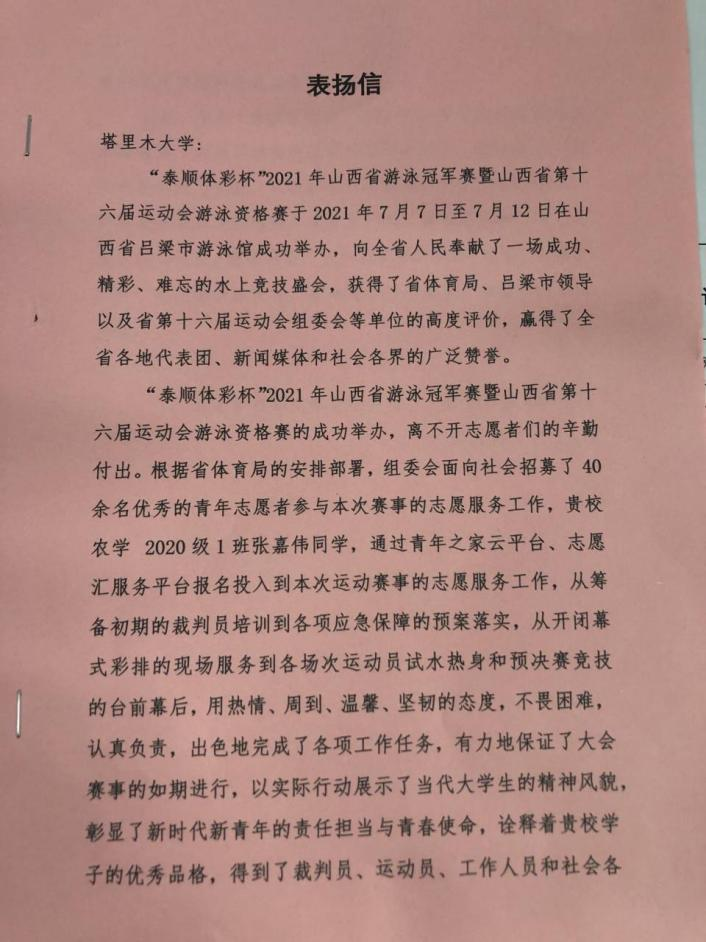 表扬信
塔里木大学：
“泰顺体彩杯”2021年山西省游泳冠军赛暨山西省第十
六届运动会游泳资格赛于2021年7月7日至7月12日在山
西省吕梁市游泳馆成功举办，向全省人民奉献了一场成功、
精彩、难忘的水上竞技盛会，获得了省体育局、吕梁市领导
以及省第十六届运动会组委会等单位的高度评价，赢得了全
省各地代表团、新闻媒体和社会各界的广泛赞誉。
“泰顺体彩杯”2021年山西省游泳冠军赛暨山西省第十
六届运动会游泳资格赛的成功举办，离不开志愿者们的辛勤
付出。根据省体育局的安排部署，组委会面向社会招募了40
余名优秀的青年志愿者参与本次赛事的志愿服务工作，贵校
农学 2020级1班张嘉伟同学，通过青年之家云平台、志愿
汇服务平台报名投入到本次运动赛事的志愿服务工作，从筹
备初期的裁判员培训到各项应急保障的预案落实，从开闭幕
式彩排的现场服务到各场次运动员试水热身和预决赛竞技
的台前幕后，用热情、周到、温馨、坚韧的态度，不畏困难，
认真负责，出色地完成了各项工作任务，有力地保证了大会
赛事的如期进行，以实际行动展示了当代大学生的精神风貌，
彰显了新时代新青年的责任担当与青春使命，诠释着贵校学
子的优秀品格，得到了裁判员、运动员、工作人员和社会各